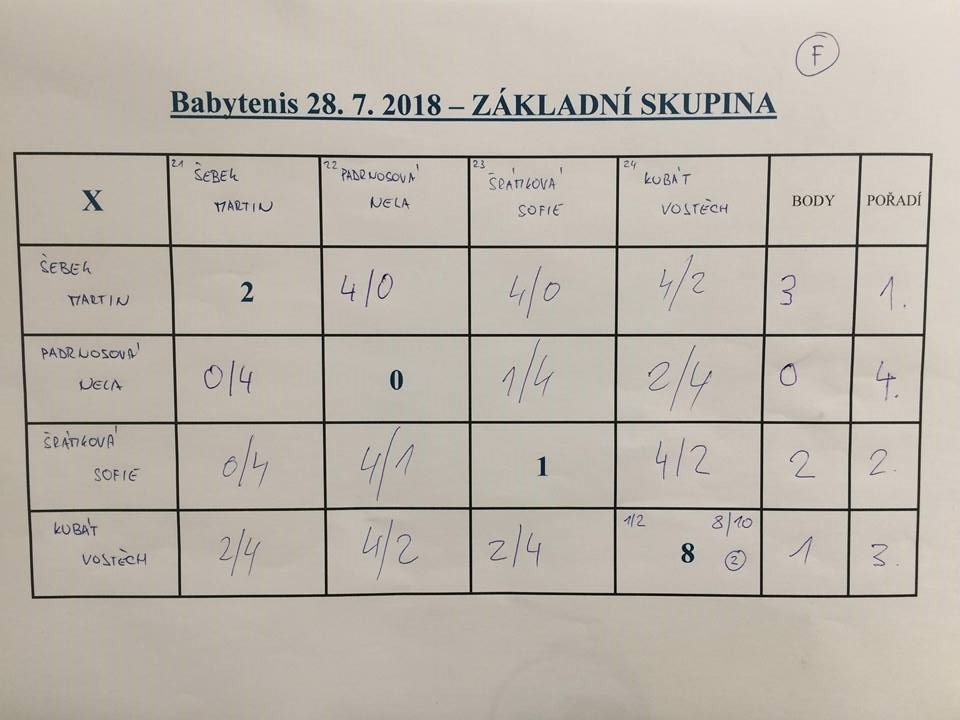 F
Babytenis 28. 7. 2018 – ZÁKLADNÍ SKUPINA
X 21 ŠEBEK MARTIN 22 PADRNOSOVÁ NELA 23 ŠRÁMKOVÁ SOFIE 24 KUBÁT VOJTĚCH BODY POŘADÍ
ŠEBEK MARTIN 2 4/0 4/0 4/2 3 1.
PADRNOSOVÁ NELA 0/4 0 1/4 2/4 0 4.
ŠRÁMKOVÁ SOFIE 0/4 4/1 1 4/2 2 2.
KUBÁT VOJTĚCH 2/4 4/2 2/4 1/2 8/10 8 2 1 3.